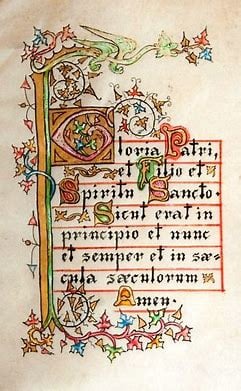 Gloria Patri,
et Filio et
Spiritu Sancto.
Sicut erat in
principio et nunc
et semper et in sæ-
cula sæculorum
Amen.